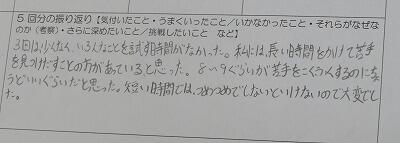 5回分の振り返り【気付いたこと・うまくいったこと/いかなかったこと・それらがなぜな
のか(考察)・さらに深めたいこと/挑戦したいこと】
3回は少なく、いろんなことを試す時間がなかった。私には、長い時間をかけて苦手
を見つけだすことの方があっていると思った。8〜9ぐらいが苦手をこくふくするのにちょ
うどいいぐらいだと思った。短い時間では、つめつめでしないといけないので大変でし
た。